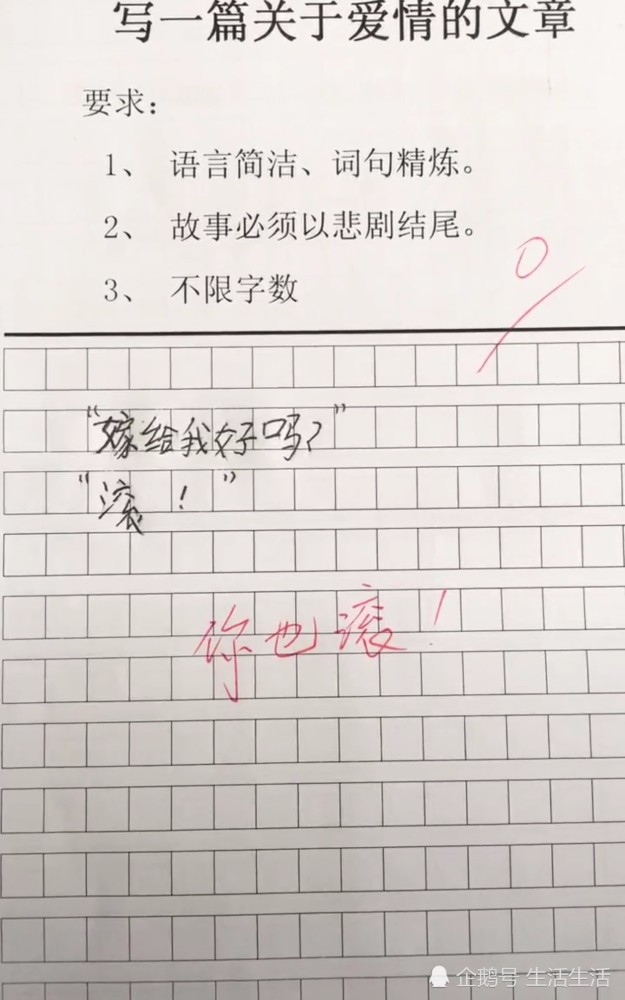 写一篇关于爱情的文章
要求：
1、 语言简洁、词句精炼。
2、 故事必须以悲剧结尾。
3、 不限字数
0
“嫁给我好吗？”
“滚！”
你也滚！
企鹅号 生活生活